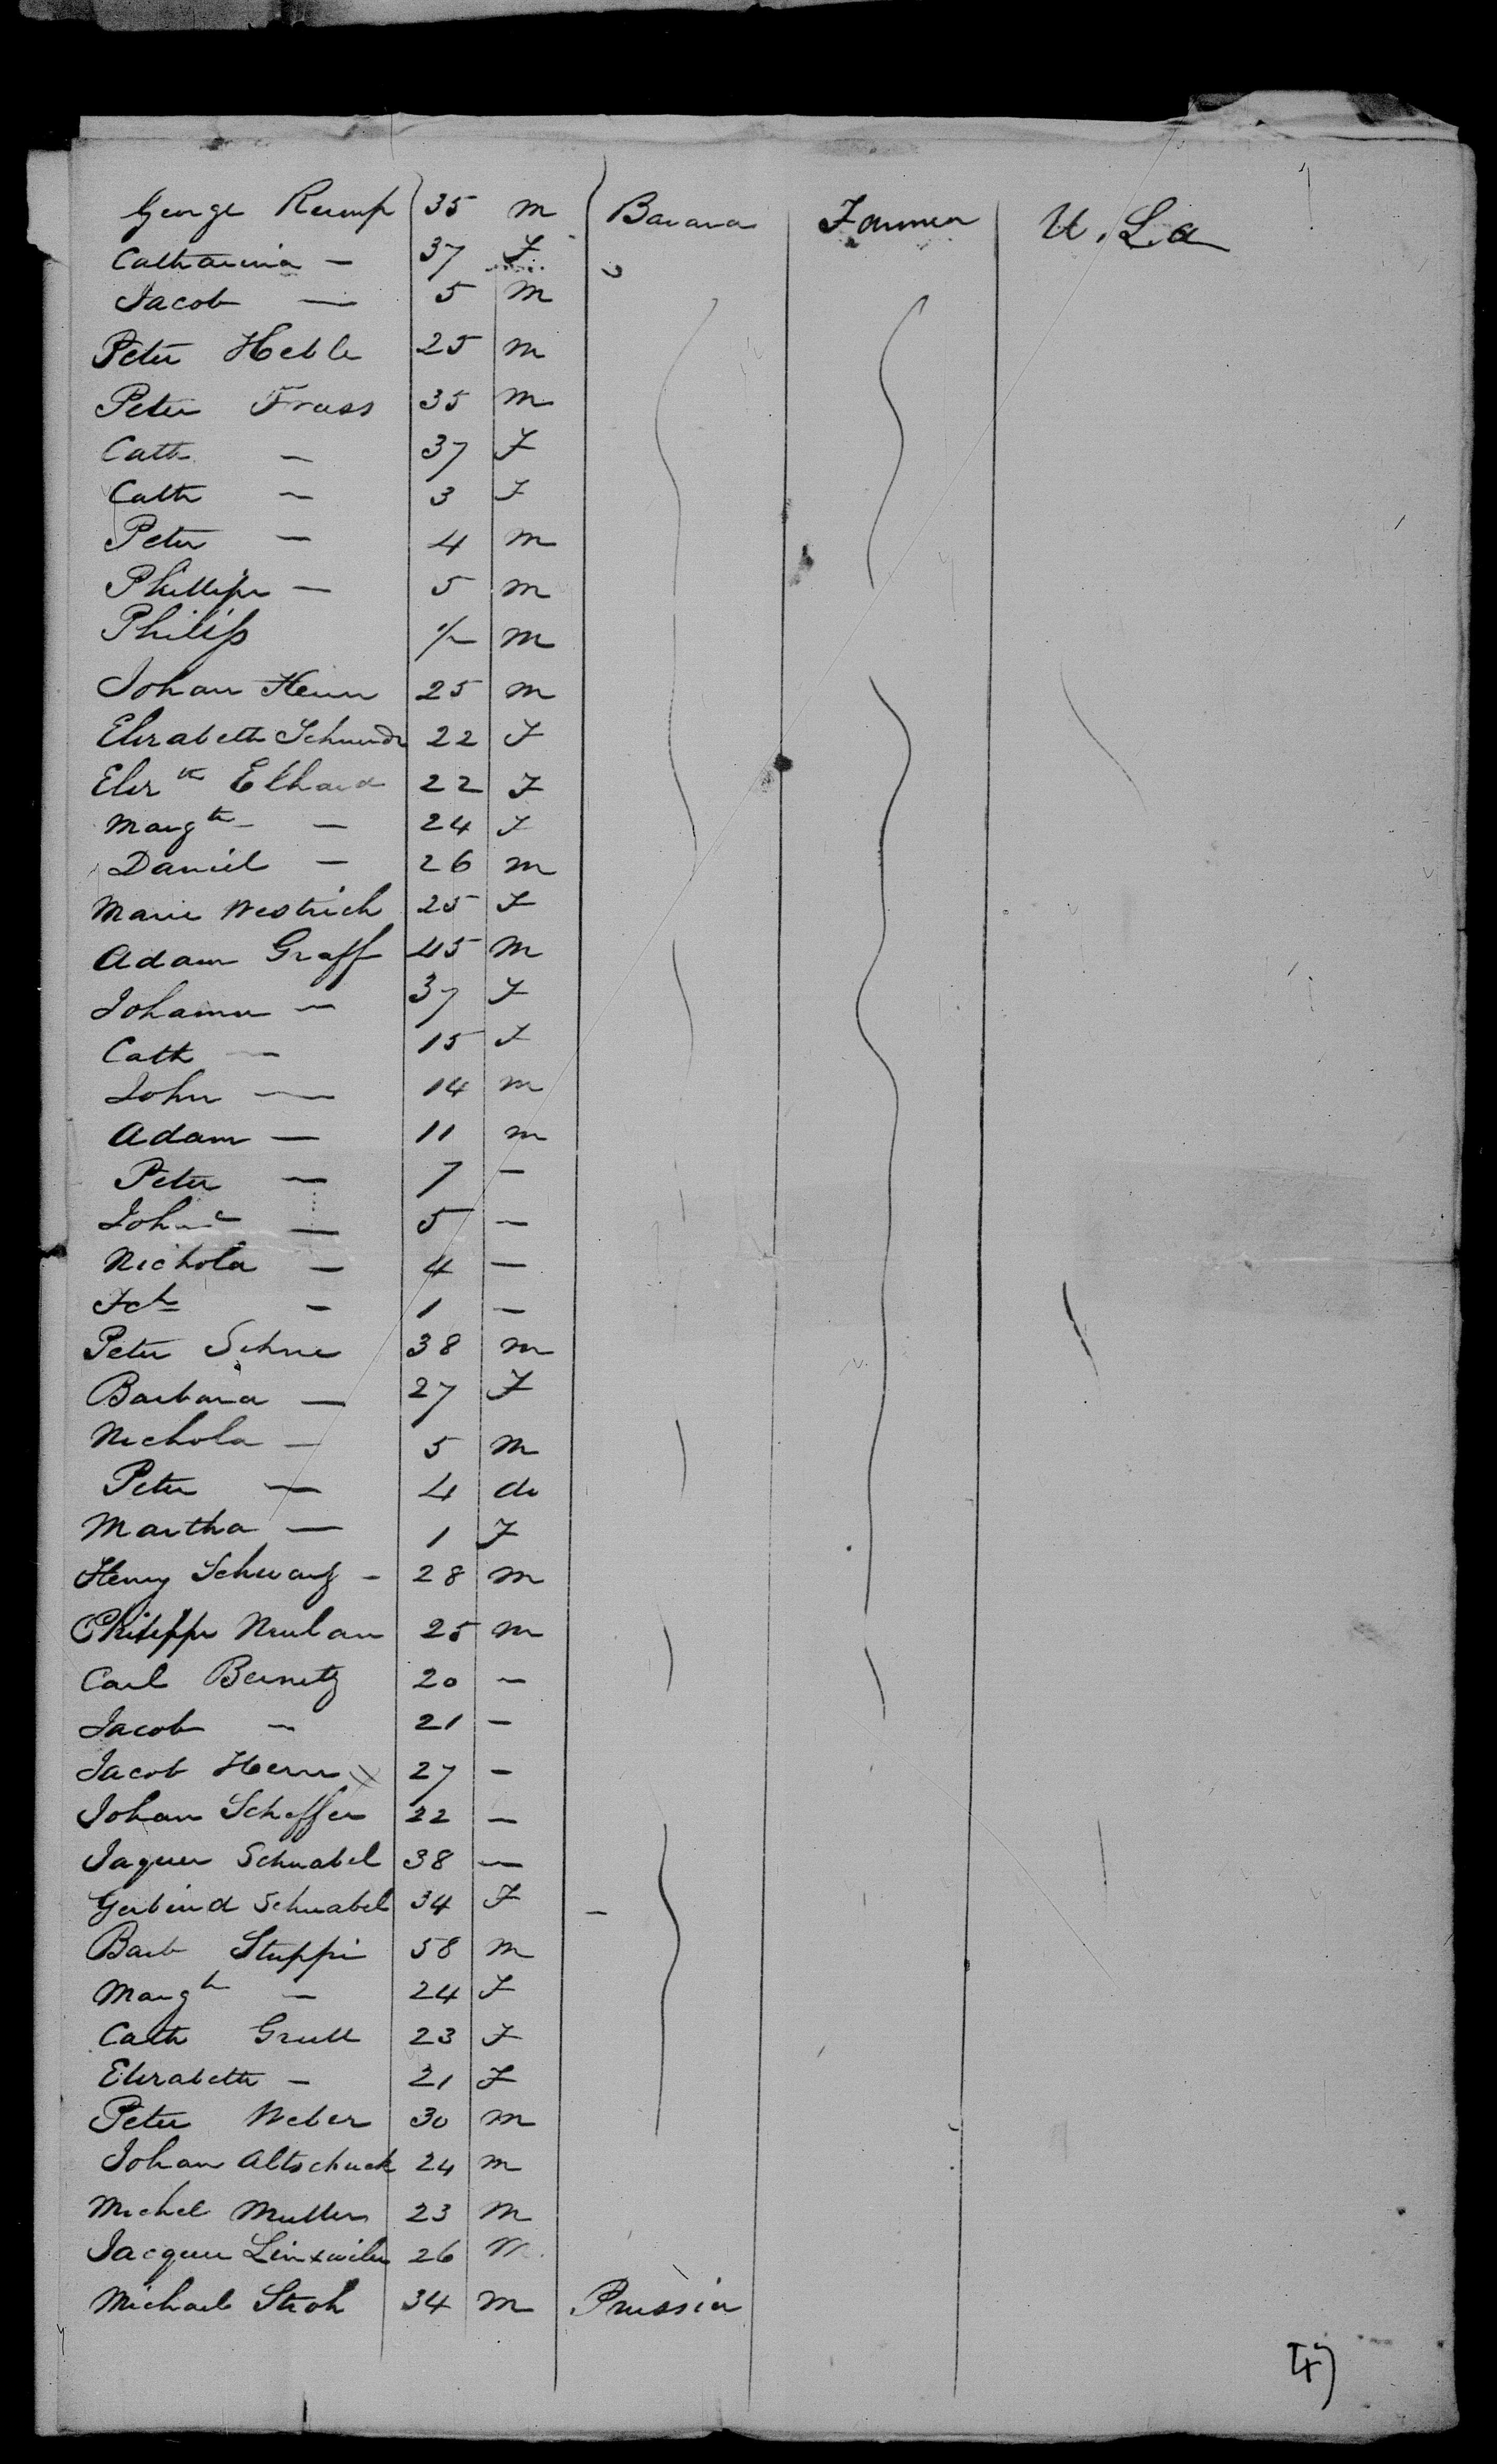 George Rump 35 m Bavaria Farmer U. Sa
Catharina — 37 F
Jacob — 5 m
Peter Heble 25 m
Peter Frass 35 m
Cath — 37 F
Cath — 3 F
Peter — 4 m
Phillipe — 5 m
Philip m
Johan Henn 25 m
Elizabeth Schmidt 22 F
Eliz th Elhard 22 F
Margth — 24 F
Daniel — 26 m
Marie Westrich 25 F
Adam Graff 45 m
Johanna — 37 F
Cath — 15 F
John — 14 m
Adam — 11 m
Peter — 7 —
— 5 —
Nichola — 4 —
— 1 —
Peter Sehne 38 m
Barbara — 27 F
Nichola — 5 m
Peter — 4 do
Martha — 1 F
Henry Schwarz — 28 m
Philippe 25 m
Carl Bernetz 20 —
Jacob — 21 —
Jacob Henn 27 —
Johan Scheffer 22 —
Jaques Schnabel 38 —
Schnabel 34 F —
Barb Stuppi 58 m
Margth — 24 F
Cath Grull 23 F
Elizabeth — 21 F
Peter Weber 30 m
Johan Altschuck 24 m
Michel Muller 23 m
Jacques Linxwiler 26 m
Michael Stroh 34 m Prussia
47